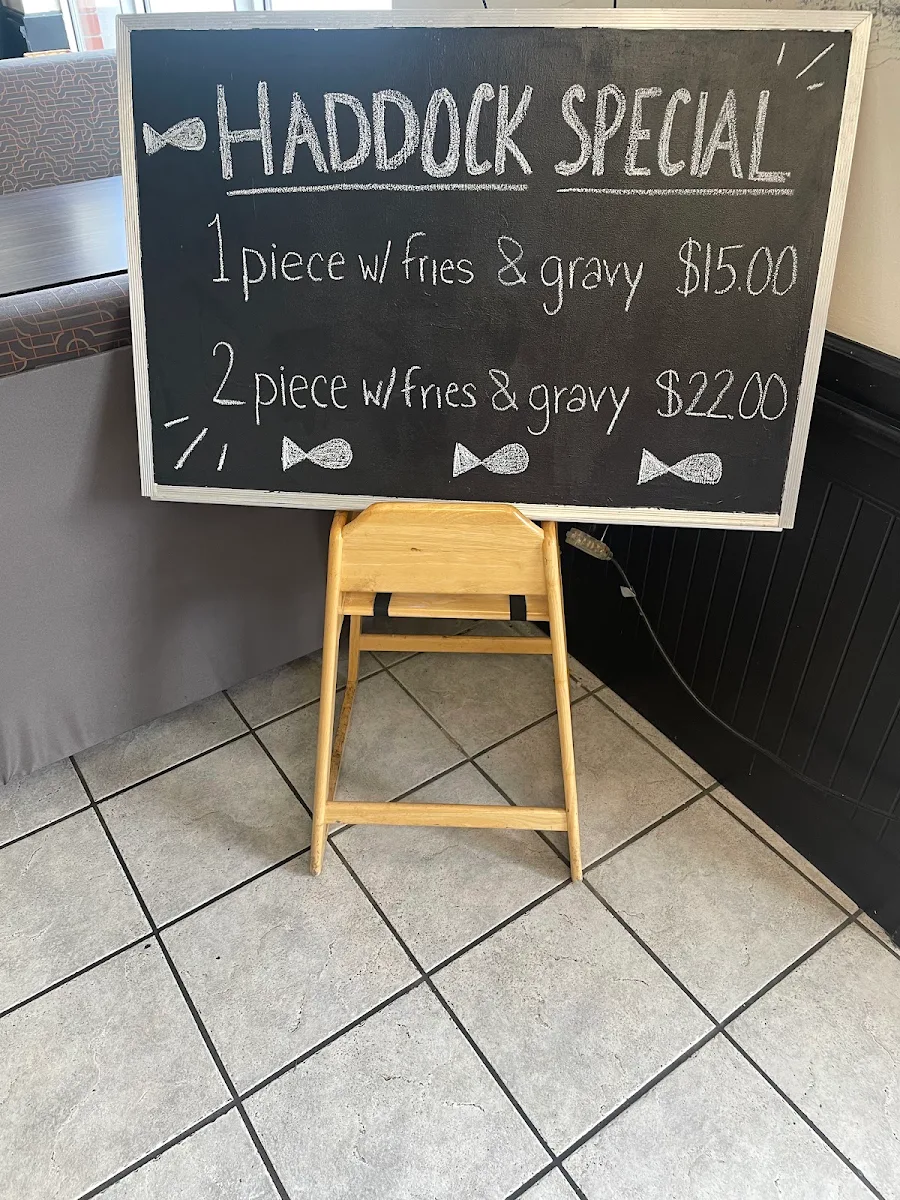 HADDOCK SPECIAL
1 piece w/ fries & gravy $15.00
2 piece w/ fries & gravy $22.00